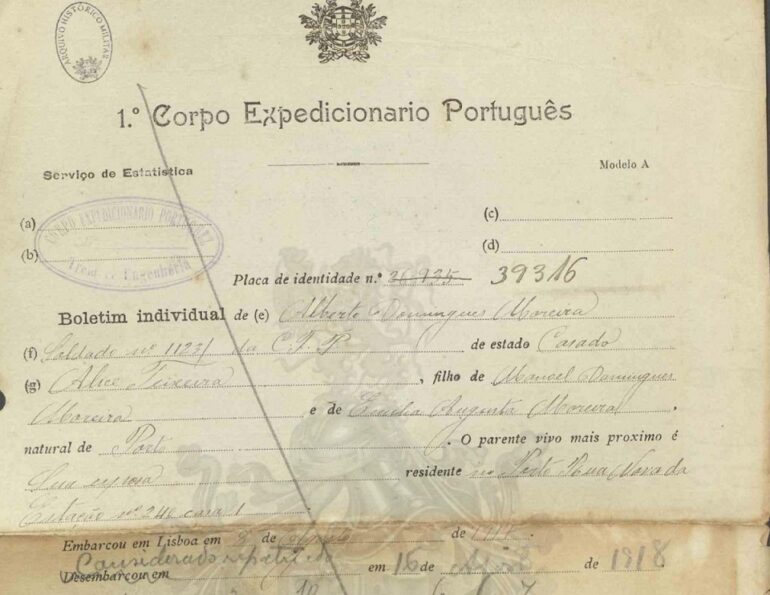 ARQUIVO HISTÓRICO MILITAR
1.º Corpo Expedicionario Português
Serviço de Estatistica
Modelo A
(a)
(c)
CORPO EXPEDICIONARIO PORTUGUEZ
(b)
(d)
Placa de identidade n.º 39316
Boletim individual de (e) Alberto Domingues Moreira
(f) Soldado nº 1123 da de estado Casado
(g) Alice Teixeira, filho de Manoel Domingues
Moreira e de Emilia Augusta Moreira.
natural de Porto. O parente vivo mais proximo é
Sua esposa residente no Porto Rua Nova da
Estação nº 246 casa 1
Embarcou em Lisboa em 8 de de
Considerado
Desembarcou em em 16 de de 1918